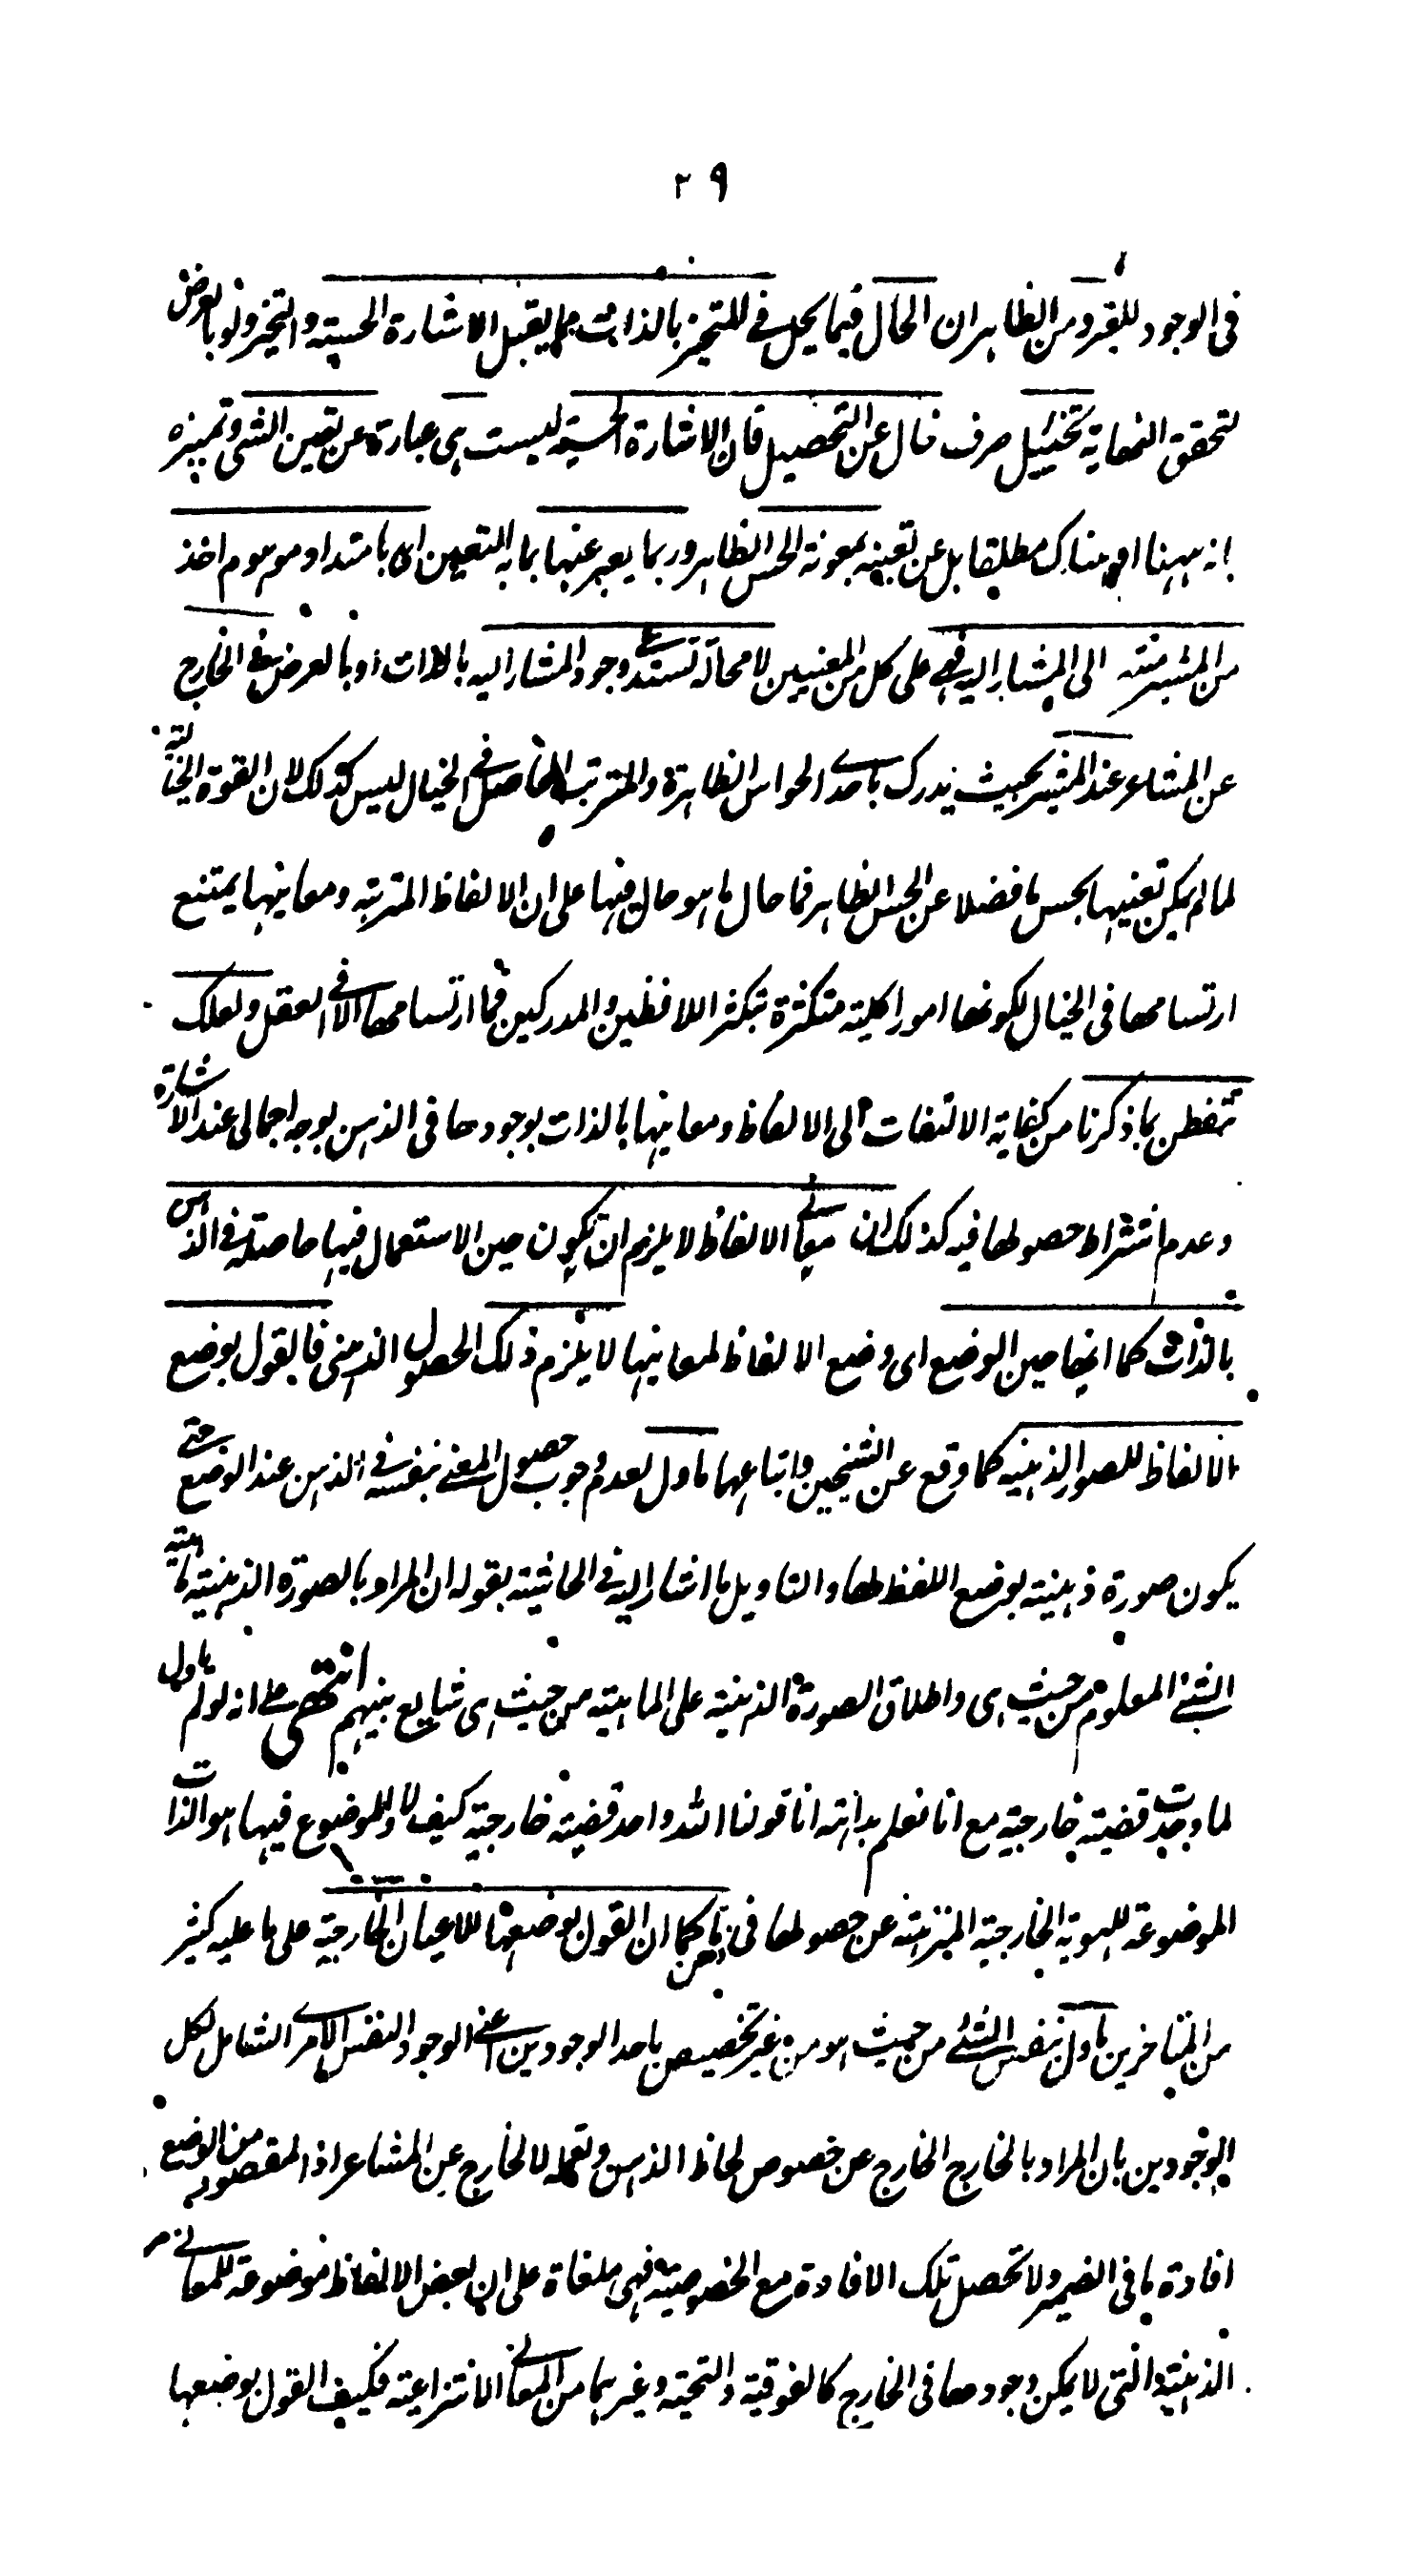 ٢٩
فى الوجود للبقر ومن الظاهر ان الحال فيما يحل فى للمتحيز بالذات مما يقبل الاشارة الحسية والتحيز ولو بالعرض
لتحقق النهاية تخئيل صرف خال عن التحصيل فان الاشارة الحسية ليست هى عبارة عن تعين الشى وتميزه
بانه ههنا او هناك مطلقا بل عن تعينه بمعونة الحس الظاهر وربما يعبر عنها بما به التعين اى بامتداد موهوم اخذ
من المشير منته الى المشار اليه فهى على كل من المعنيين لا محالة تستدعى وجود المشار اليه بالذات او بالعرض فى الخارج
عن المشاعر عند المشير بحيث يدرك باحدى الحواس الظاهرة والمترتب الحاصل فى الخيال ليس كذلك لان القوة الخيالية
لما لم يمكن تعينها بحس ما فضلا عن الحس الظاهر فما حال ما هو حال فيها على ان الالفاظ المترتبه ومعانيها يمتنع
ارتسامها فى الخيال لكونها امورا كلية متكثرة بتكثر اللافظين والمدركين فما ارتسامها الا فى العقل ولعلك
تتفطن بما ذكرنا من كفاية الالتفات الى الالفاظ ومعانيها بالذات بوجودها فى الذهن بوجه اجمالى عند الاشارة
وعدم اشتراط حصولها فيه كذلك ان معانى الالفاظ لا يلزم ان تكون حين الاستعمال فيها حاصلة فى الذهن
بالذات كما انها حين الوضع اى وضع الالفاظ لمعانيها لا يلزم ذلك الحصول الذهنى فالقول بوضع
الالفاظ للصور الذهنيه كما وقع عن الشيخين واتباعهما ماول لعدم وجوب حصول المعنى بنفسه فى الذهن عند الوضع حتى
يكون صورة ذهنية بوضع اللفظ لها والتاويل ما اشار اليه فى الحاشية بقوله ان المراد بالصورة الذهنية ماهية
الشئ المعلوم من حيث هى واطلاق الصورة الذهنية على الماهية من حيث هى شايع بينهم انتهى على انه لو لم ياول
لما وجدت قضية خارجية مع انا نعلم بداهته انا قولنا الله واحد قضية خارجية كيف لا والموضوع فيها هو الذات
الموضوعة للهوية الخارجية المنزهة عن حصولها فى ذهن ما كما ان القول بوضعها للاعيان الخارجية على ما عليه كثير
من المتاخرين ماول بنفس الشئ من حيث هو من غير تخصيص باحد الوجودين اعنى الوجود النفس الامرى الشامل لكل
الوجودين بان المراد بالخارج الخارج عن خصوص لحاظ الذهن وتعمله لا الخارج عن المشاعر اذ المقصود من الوضع
افادة ما فى الضمير ولا تحصل تلك الافادة مع الخصوصية فهى ملغاة على ان بعض الالفاظ موضوعة للمعانى
الذهنية والتى لا يمكن وجودها فى الخارج كالفوقية والتحتية وغيرهما من المعانى الانتزاعية فكيف القول بوضعها